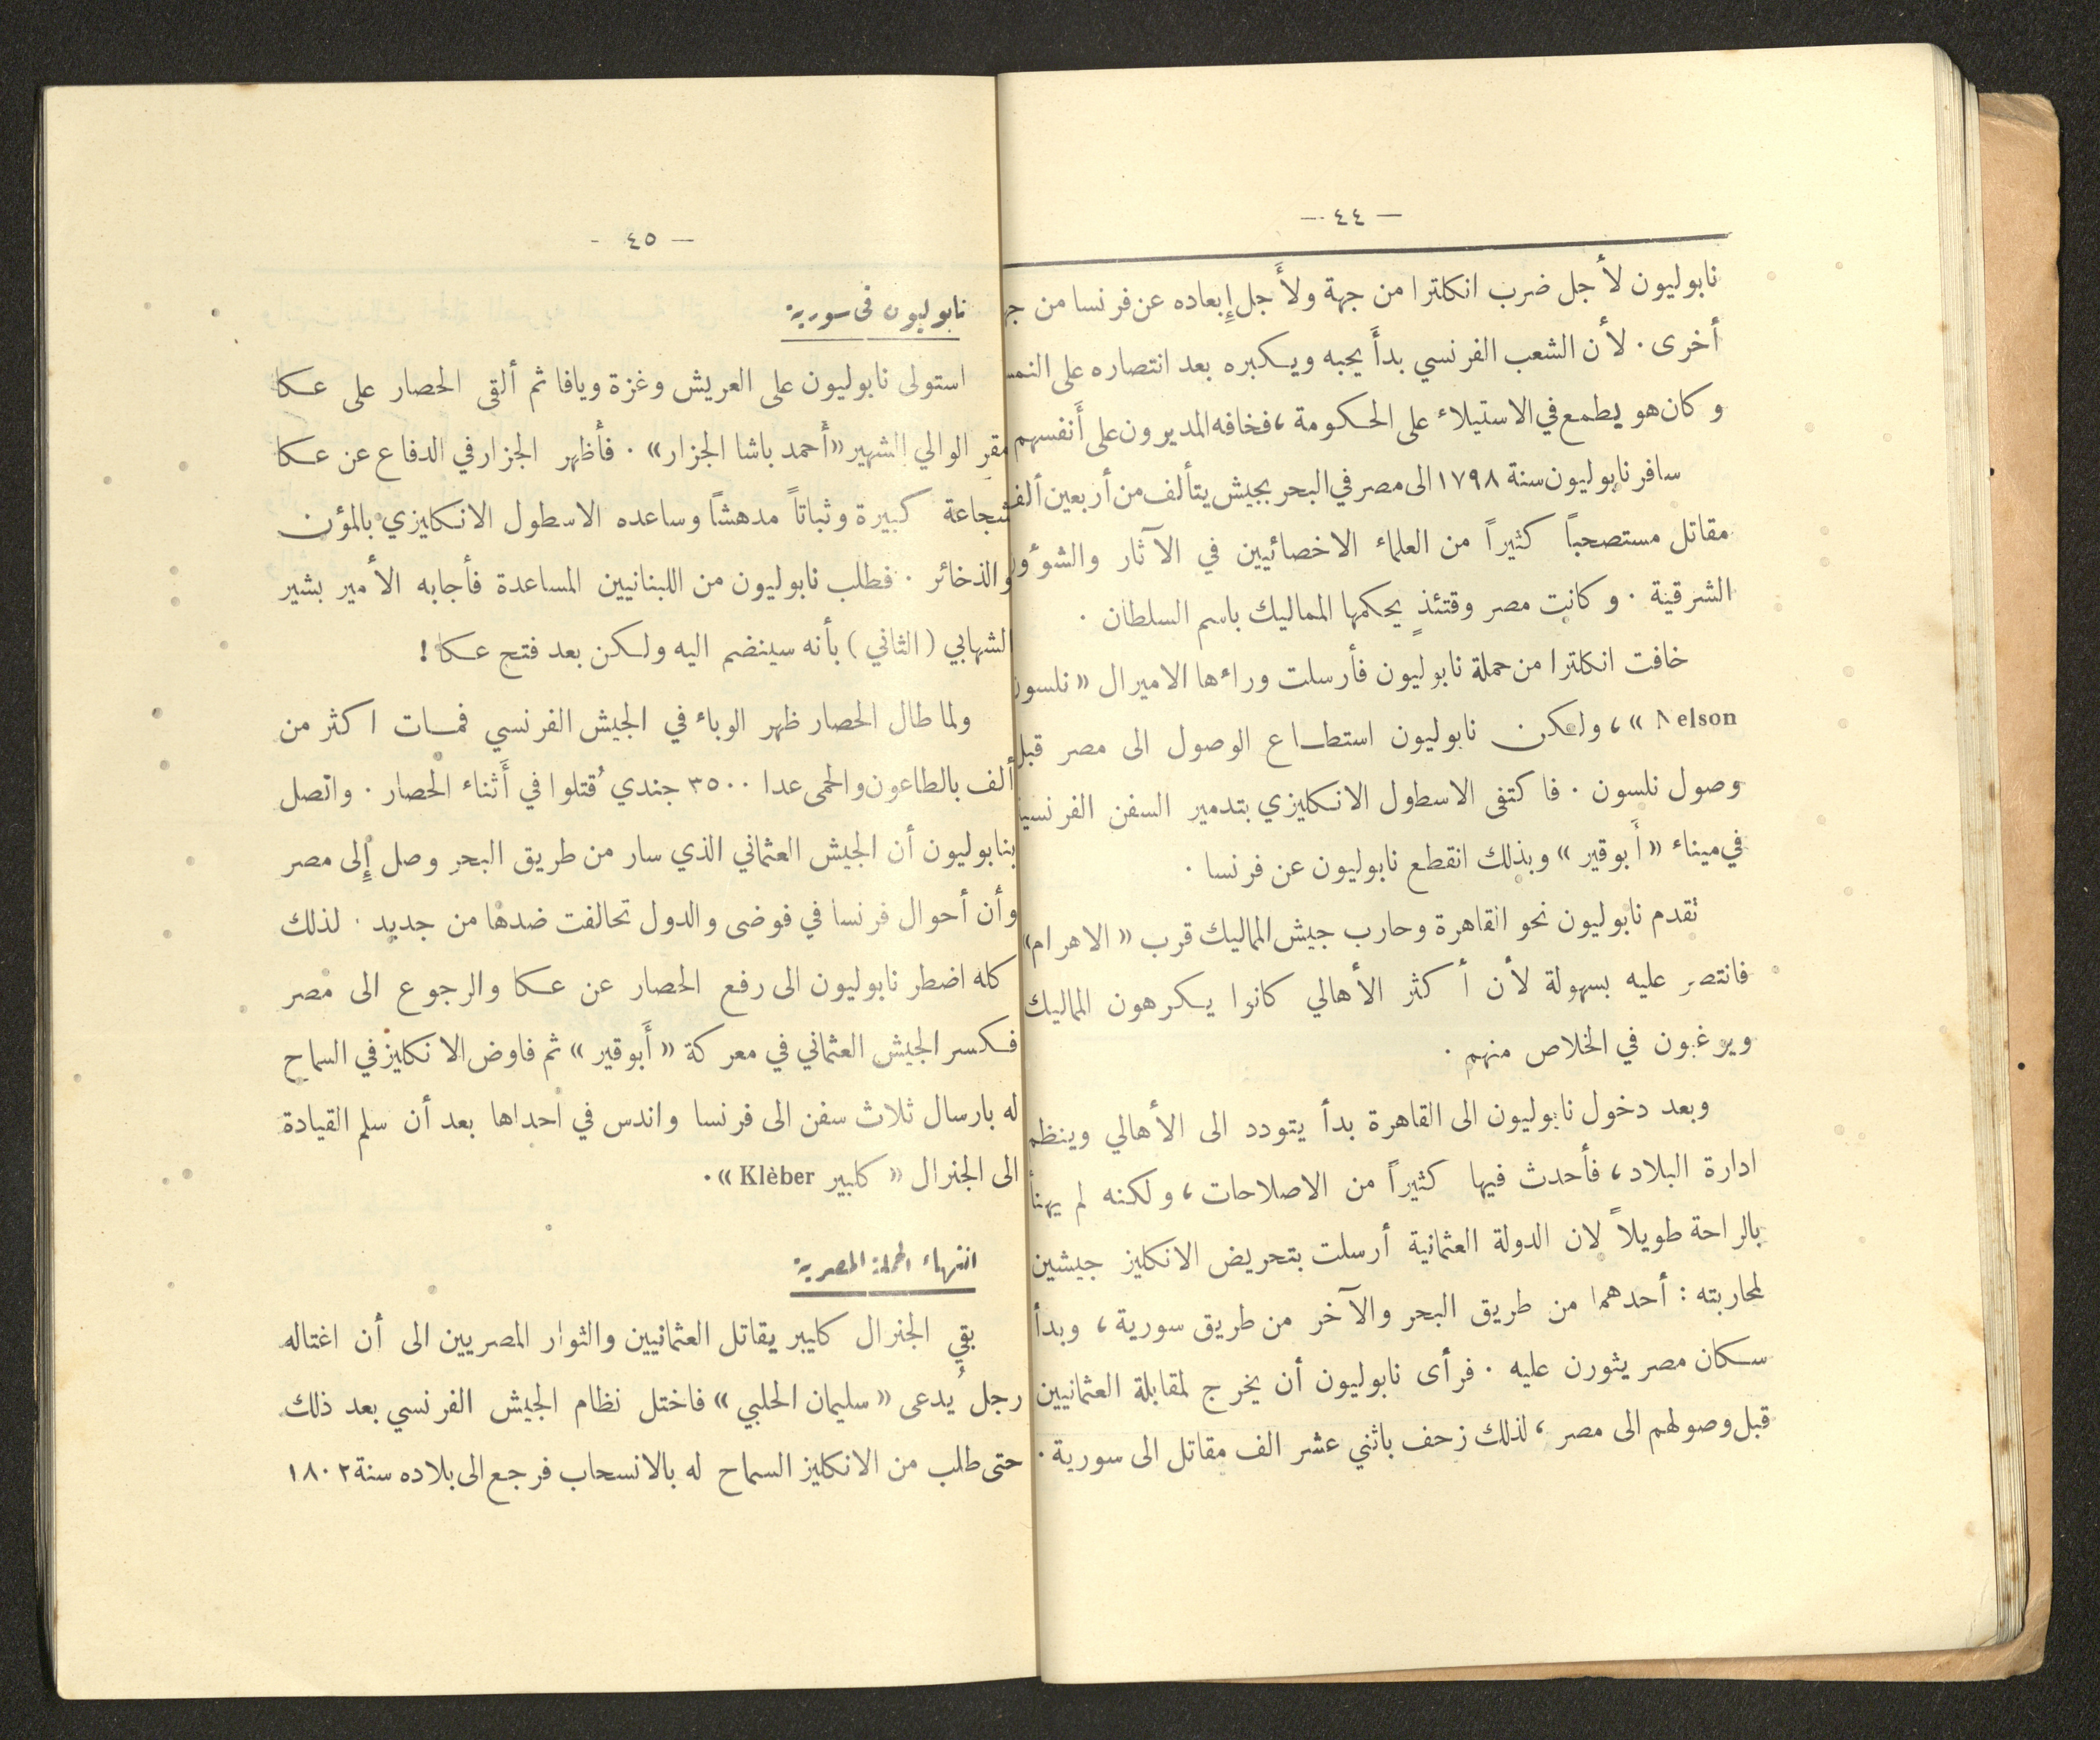 — ٤٤ —
نابوليون لأجل ضرب انكلترا من جهة ولأَجل إِبعاده عن فرنسا من
أخرى . لأن الشعب الفرنسي بدأَ يحبه ويكبره بعد انتصاره على
وكان هو يطمع في الاستيلاء على الحكومة ، فخافه المديرون على أَنفسهم
سافر نابوليون سنة ١٧٩٨ الى مصر في البحر بجيش يتألف من أربعين ألف
مقاتل مستصحباً كثيراً من العلماء الاخصائيين في الآثار والشؤون
الشرقية . وكانت مصر وقتئذٍ يحكمها المماليك باسم السلطان .
خافت انكلترا من حملة نابوليون فأرسلت وراءها الاميرال « نلسون
Nelson » ، ولكن نابوليون استطاع الوصول الى مصر قبل
وصول نلسون . فاكتفى الاسطول الانكليزي بتدمير السفن الفرنسية
في ميناء « أَبوقير » وبذلك انقطع نابوليون عن فرنسا .
تقدم نابوليون نحو القاهرة وحارب جيش المماليك قرب « الاهرام»
فانتصر عليه بسهولة لأن أكثر الأهالي كانوا يكرهون المماليك
ويرغبون في الخلاص منهم .
وبعد دخول نابوليون الى القاهرة بدأ يتودد الى الأهالي وينظم
ادارة البلاد ، فأحدث فيها كثيراً من الاصلاحات ، ولكنه لم يهنأ
بالراحة طويلاً لان الدولة العثمانية أرسلت بتحريض الانكليز جيشين
لمحاربته : أحدهما من طريق البحر والآخر من طريق سورية ، وبدأ
سكان مصر يثورن عليه . فرأى نابوليون أن يخرج لمقابلة العثمانيين
قبل وصولهم الى مصر ، لذلك زحف باثني عشر الف مقاتل الى سورية .
— ٤٥ -
نابوليون في سورية
استولى نابوليون على العريش وغزة ويافا ثم ألقى الحصار على عكا
مقر الوالي الشهير «أَحمد باشا الجزار» . فأظهر الجزار في الدفاع عن عكا
شجاعة كبيرة وثباتاً مدهشاً وساعده الاسطول الانكليزي بالمؤن
والذخائر . فطلب نابوليون من اللبنانيين المساعدة فأجابه الأمير بشير
الشهابي ( الثاني ) بأنه سينضم اليه ولكن بعد فتح عكا !
ولما طال الحصار ظهر الوباء في الجيش الفرنسي فمات اكثر من
ألف بالطاعون والحمى عدا ٣٥٠٠ جندي قُتلوا في أَثناء الحصار . واتصل
بنابوليون أن الجيش العثماني الذي سار من طريق البحر وصل إِلى مصر
وأن أحوال فرنسا في فوضى والدول تحالفت ضدها من جديد . لذلك
كله اضطر نابوليون الى رفع الحصار عن عكا والرجوع الى مصر
فكسر الجيش العثماني في معركة « أَبوقير » ثم فاوض الانكليز في السماح
له بارسال ثلاث سفن الى فرنسا واندس في احداها بعد أن سلم القيادة
الى الجنرال « كليبر Klèber » .
انتهاء الحملة المصرية
بقي الجنرال كليبر يقاتل العثمانيين والثوار المصريين الى أن اغتاله
رجل يُدعى « سليمان الحلبي » فاختل نظام الجيش الفرنسي بعد ذلك
حتى طلب من الانكليز السماح له بالانسحاب فرجع الى بلاده سنة ١٨٠٢